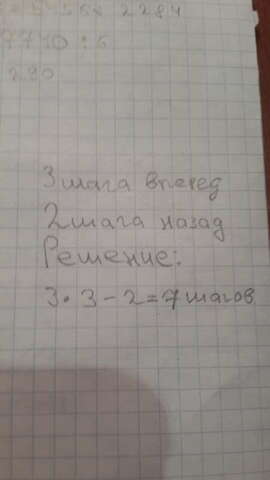 2284
7710 : 6
290
3 шага вперед
2 шага назад
Решение:
3 • 3 - 2 = 7 шагов